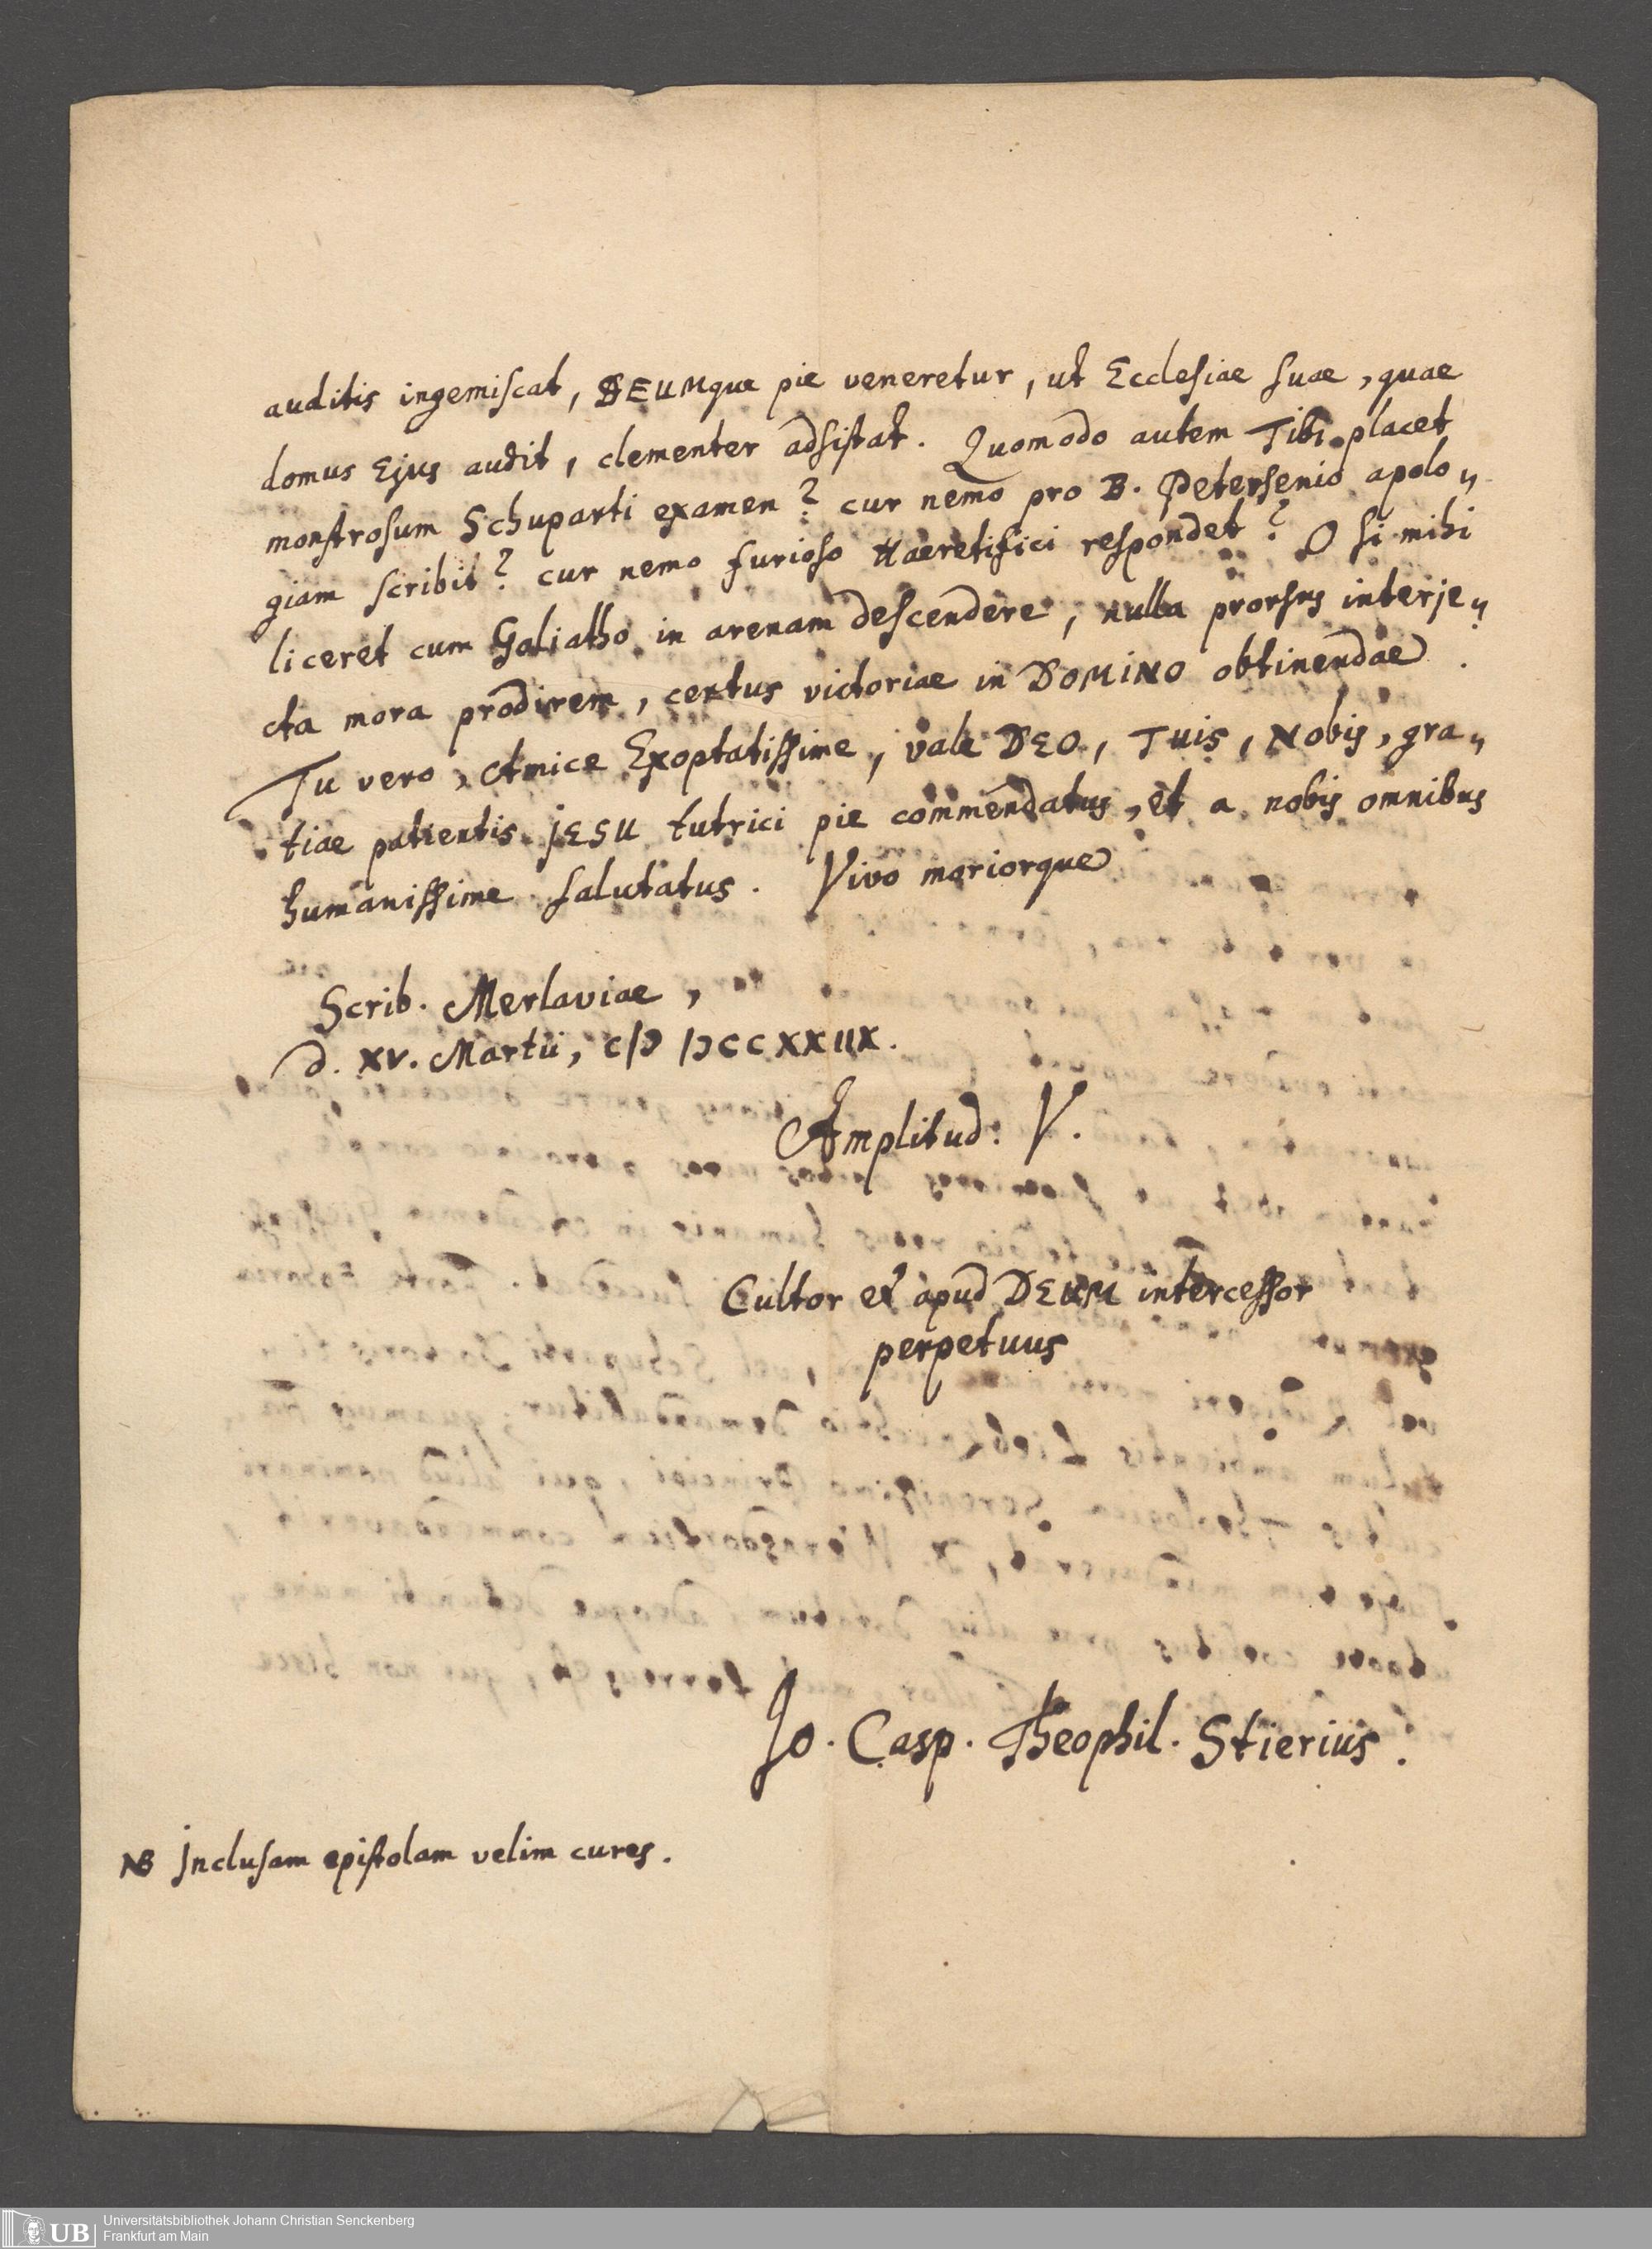 auditis ingemiscat, DEUMque pie veneretur, ut Ecclesiae suae, quae
domus Ejus audit, clementer adsistat. Quomodo autem Tibi placet
monstrosum Schuparti examen? cur nemo pro B. Petersenio apolo„
giam scribit? cur nemo furioso Haeretifici respondet? O si mihi
liceret cum Goliatho in arenam descendere, nulla prorsus interje„
cta mora prodirem, certus victoriae in DOMINO obtinendae.
Tu vero, Amice Exoptatissime, vale DEO, Tuis, Nobis, gra„
tiae patientis JESU tutrici pie commendatus, et a nobis omnibus
humanissime salutatus. Vivo moriorque
Scrib. Merlaviae,
d. XV. Martii, cIↃ IↃccxxiix.
Amplitud. V.
Cultor et apud DEUM intercessor
perpetuus
Jo. Casp. Theophil. Stierius.
NB Inclusam epistolam velim cures.
UB Universitätsbibliothek Johann Christian Senckenberg
Frankfurt am Main